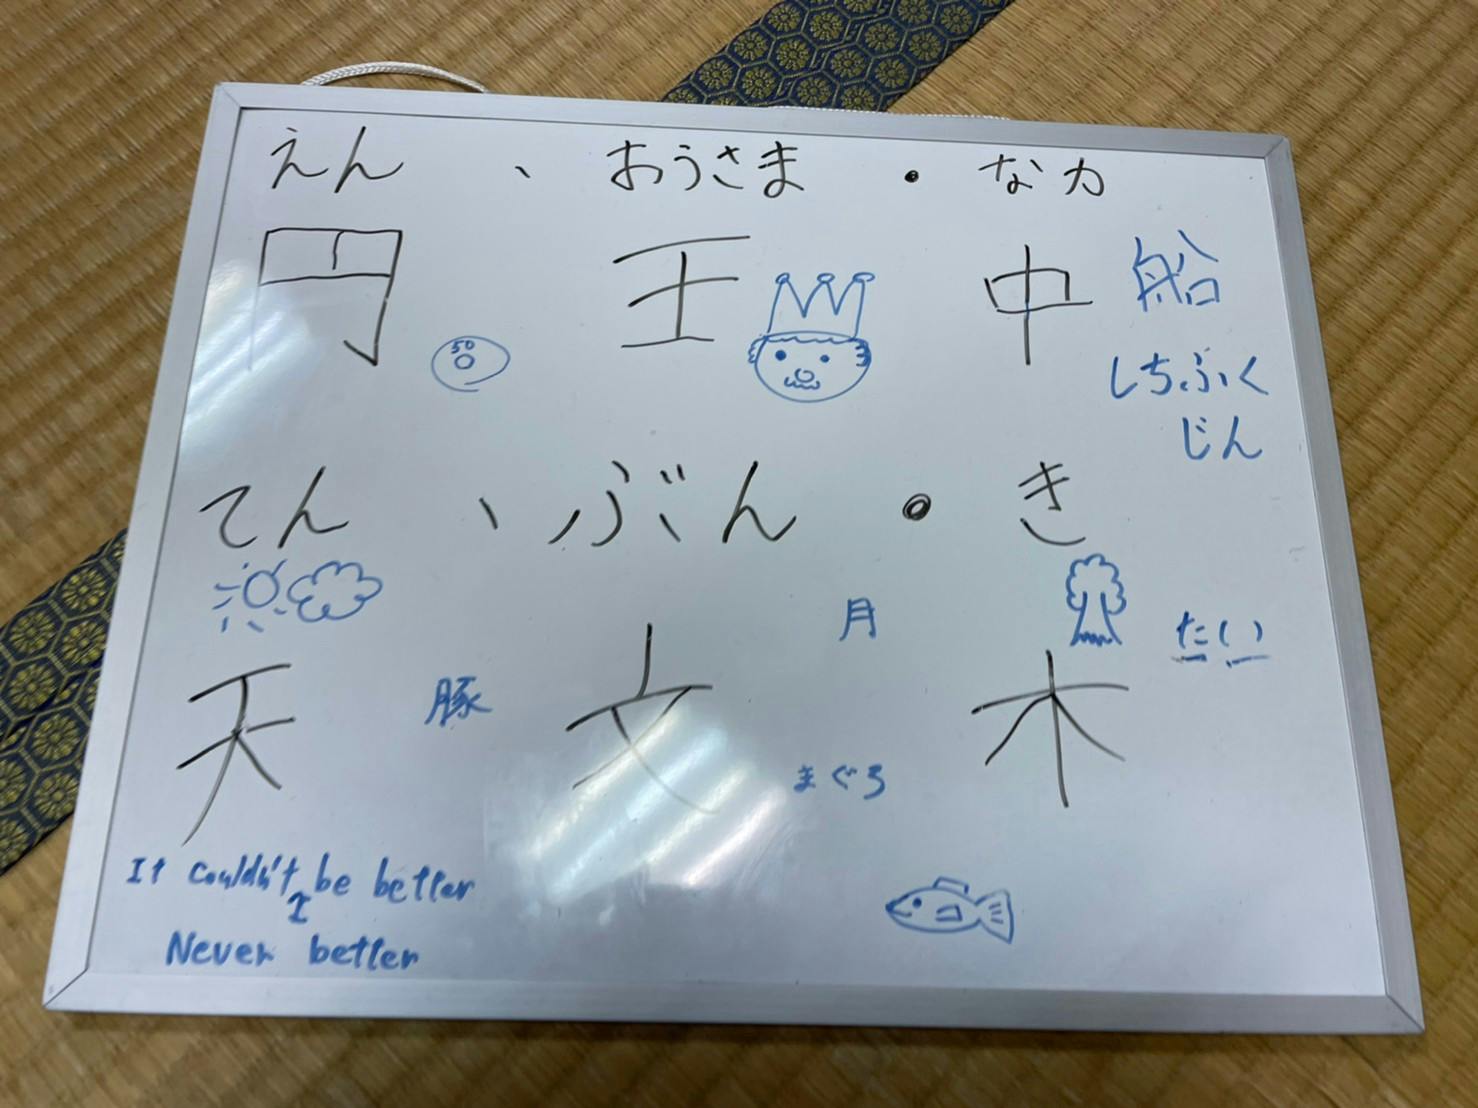 えん 、 おうさま ・ なカ
円 王 中 船
50
しちふく
じん
てん 、 ぶん ・ き
月 たい
天 豚 文 木
まぐろ
It couldn't be better
I
Never better